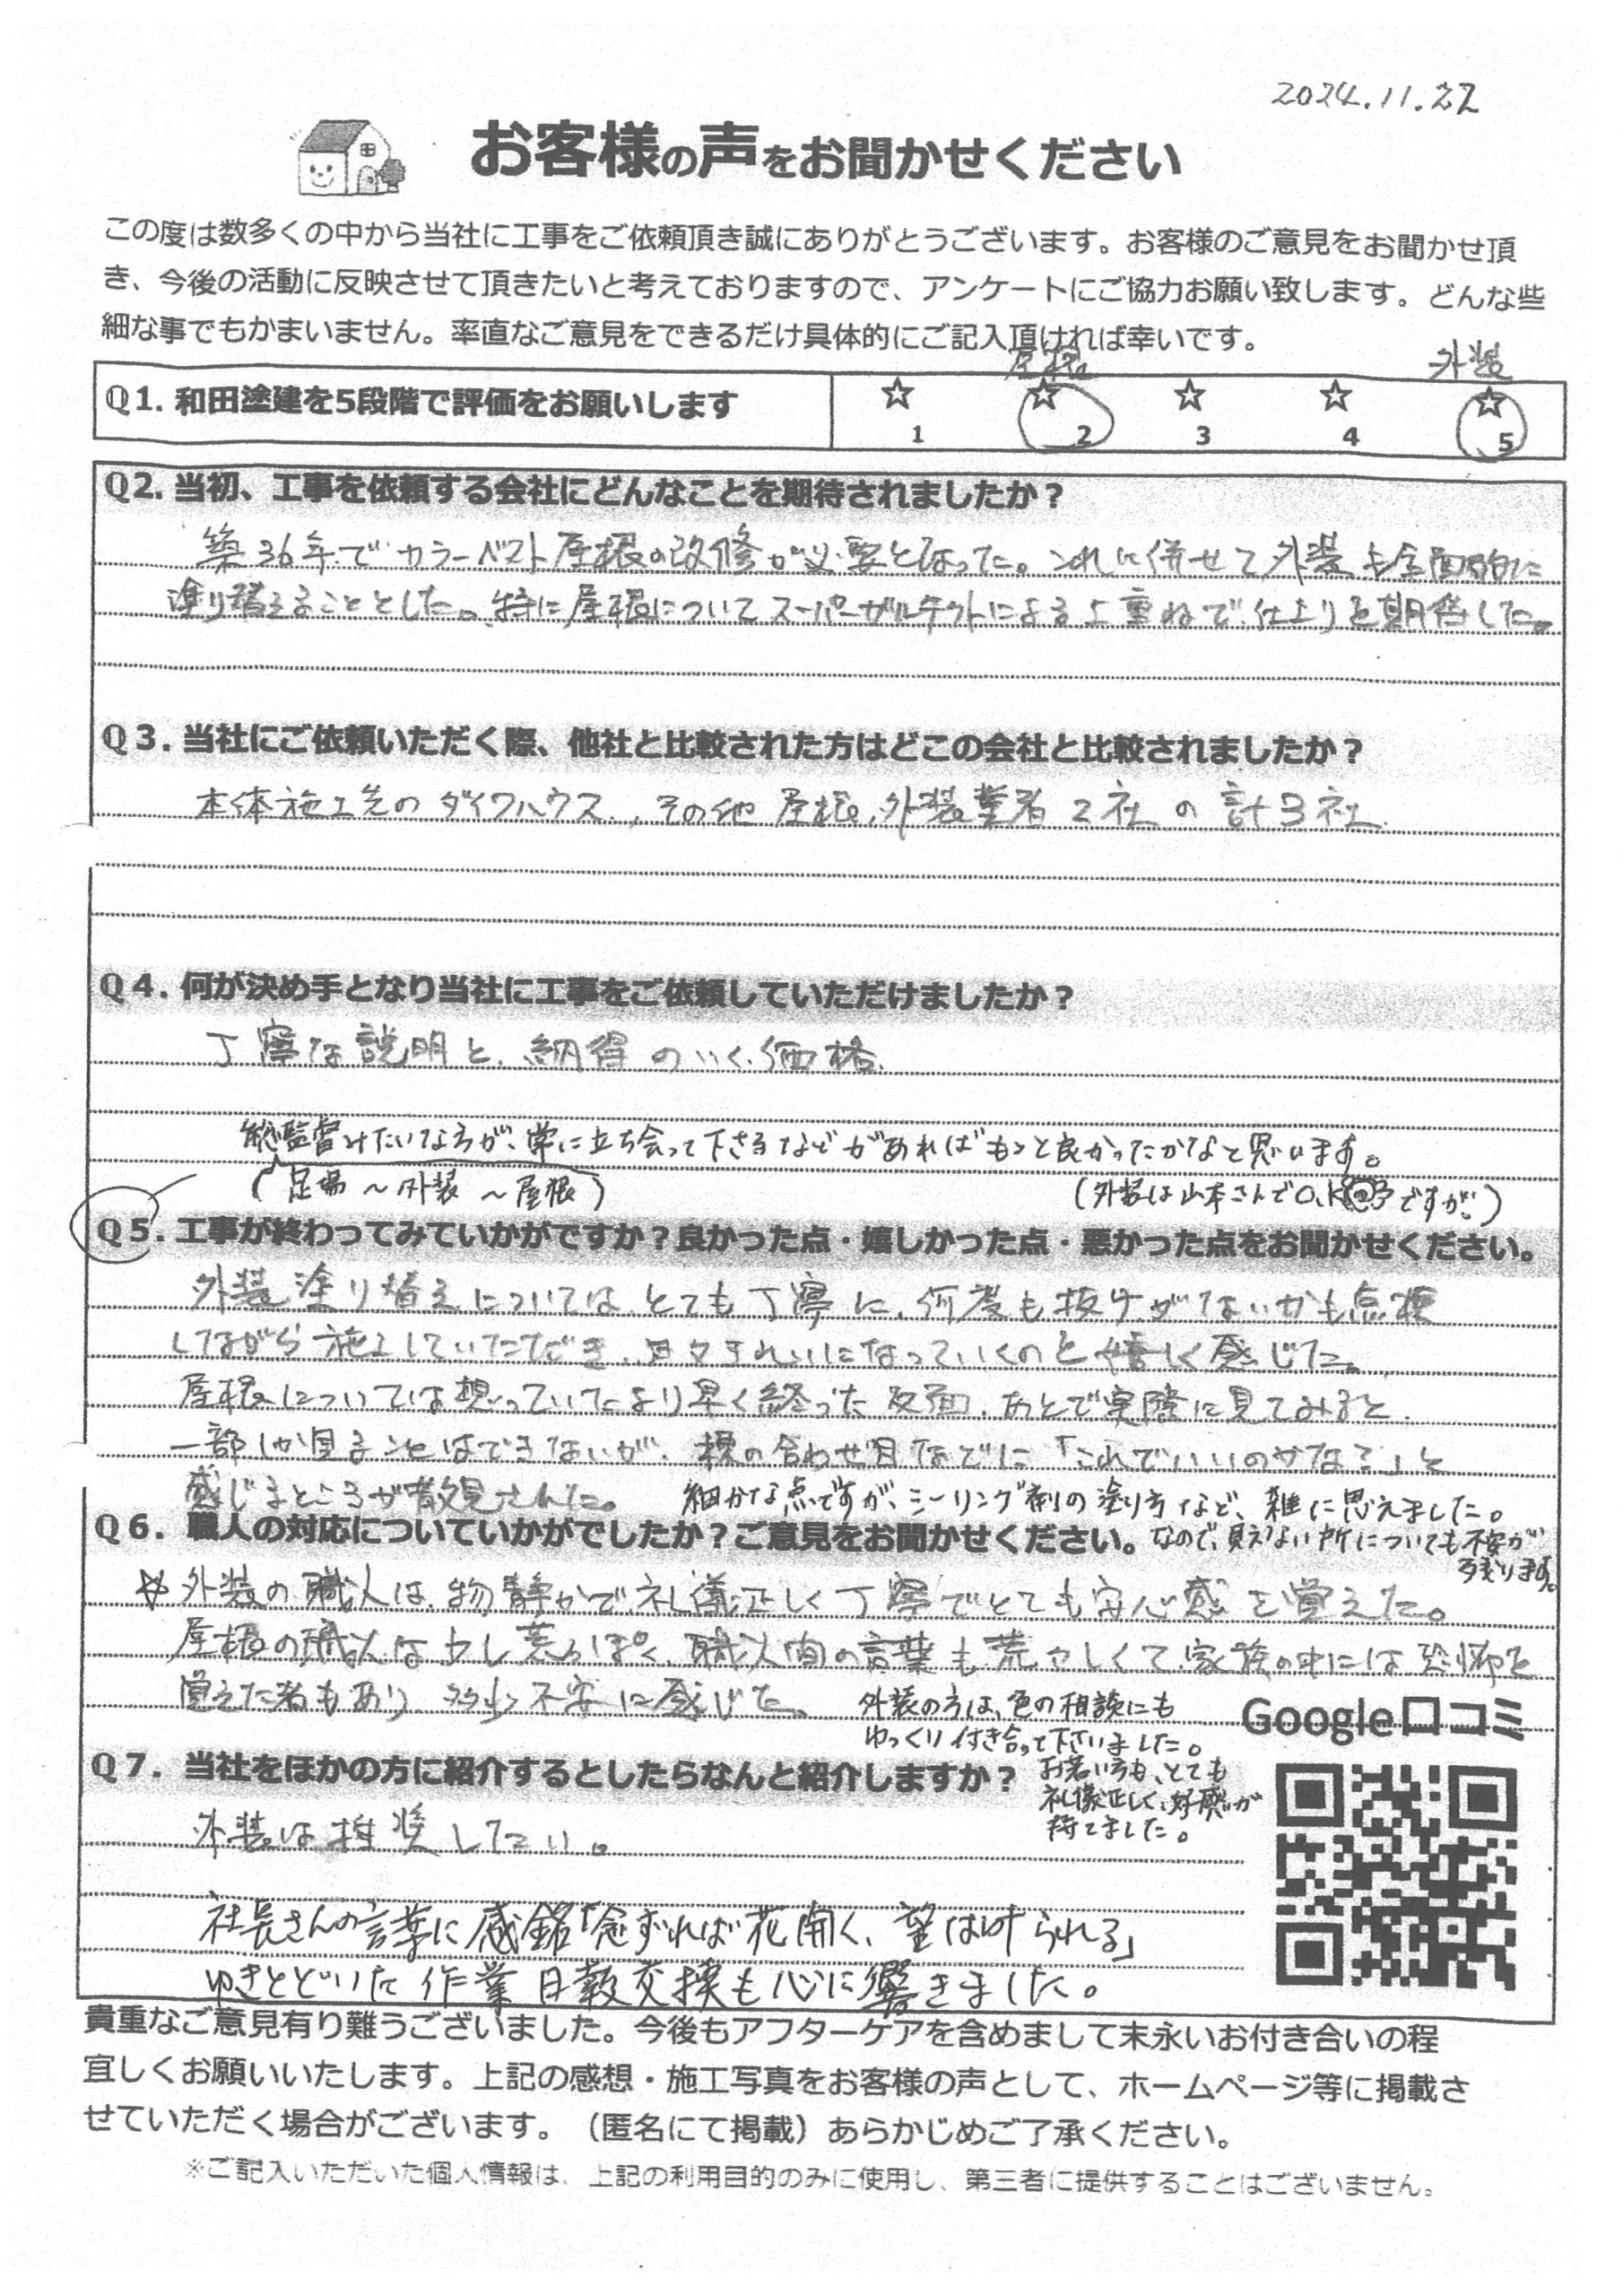 2024.11.22
お客様の声をお聞かせください
この度は数多くの中から当社に工事をご依頼頂き誠にありがとうございます。お客様のご意見をお聞かせ頂
き、今後の活動に反映させて頂きたいと考えておりますので、アンケートにご協力お願い致します。どんな些
細な事でもかまいません。率直なご意見をできるだけ具体的にご記入頂ければ幸いです。
屋根 外装
Q1. 和田塗建を5段階で評価をお願いします ☆1 ☆2 ☆3 ☆4 ☆5
Q2. 当初、工事を依頼する会社にどんなことを期待されましたか？
築36年でカラーベスト屋根の改修が必要となった。これに併せて外装も全面的に
塗り替えることとした。特に屋根についてスーパーガルテクトによる上重ねで仕上りを期待した。
Q3. 当社にご依頼いただく際、他社と比較された方はどこの会社と比較されましたか？
本体施工先のダイワハウス、その他屋根、外装業者2社の計3社
Q4. 何が決め手となり当社に工事をご依頼していただけましたか？
丁寧な説明と、納得のいく価格
総監督みたいな方が、常に立ち会って下さるなどがあればもっと良かったかなと思います。
(足場〜外装〜屋根) (外装は山本さんでO.Kですが。)
Q5. 工事が終わってみていかがですか？良かった点・嬉しかった点・悪かった点をお聞かせください。
外装塗り替えについてはとても丁寧に、何度も抜けがないかも点検
しながら施工していただき、日々きれいになっていくのと嬉しく感じた。
屋根については想っていたより早く終った反面、あとで実際に見てみると、
一部しか見ることはできないが、棟の合わせ目などに「これでいいのかな？」と
感じるところが散見された。 細かな点ですが、シーリング剤の塗り方など、雑に思えました。
なので、見えない所についても不安が
残ります。
Q6. 職人の対応についていかがでしたか？ご意見をお聞かせください。
☆外装の職人は、物静かで礼儀正しく丁寧でとても安心感を覚えた。
屋根の職人は少し荒っぽく、職人間の言葉も荒々しくて家族の中には恐怖を
覚えた者もあり、多少不安に感じた。
外装の方は、色の相談にも
ゆっくり付き合って下さいました。
お若い方も、とても
礼儀正しく、好感が
持てました。
Google口コミ
Q7. 当社をほかの方に紹介するとしたらなんと紹介しますか？
外装は推奨したい。
社長さんの言葉に感銘「念ずれば花開く、望は叶られる」
ゆきとどいた作業日報交換も心に響きました。
貴重なご意見有り難うございました。今後もアフターケアを含めまして末永いお付き合いの程
宜しくお願いいたします。上記の感想・施工写真をお客様の声として、ホームページ等に掲載さ
せていただく場合がございます。（匿名にて掲載）あらかじめご了承ください。
※ご記入いただいた個人情報は、上記の利用目的のみに使用し、第三者に提供することはございません。